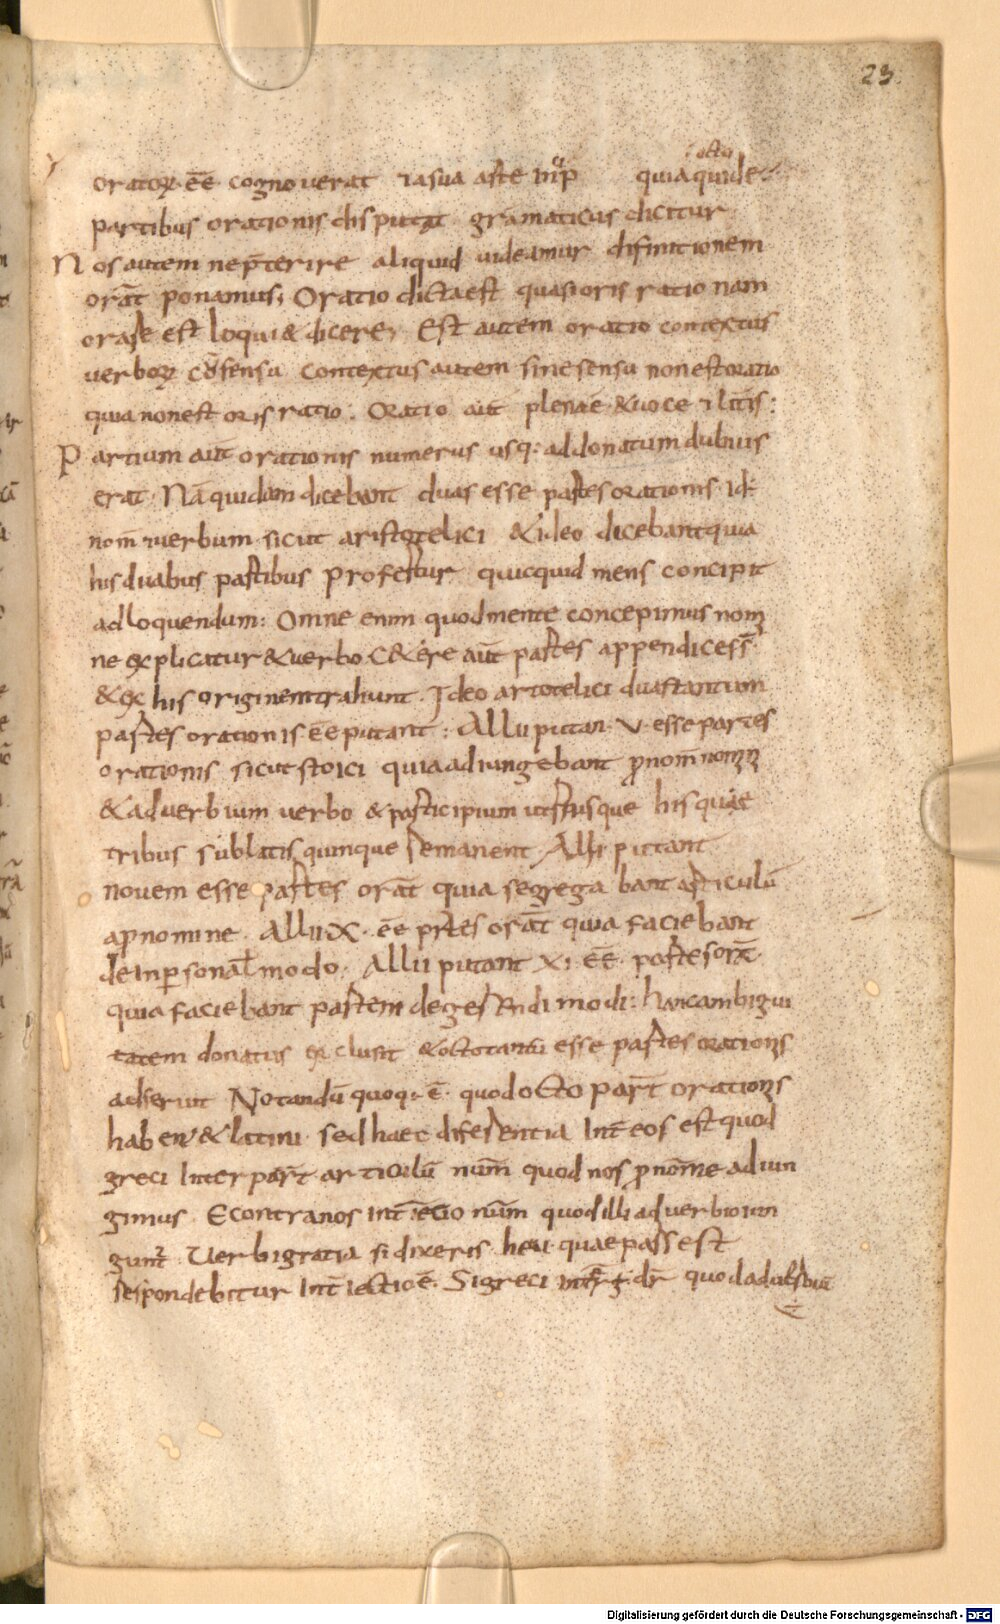 23.
octo
oratoꝝ · eē cognouerat ⁊ asua arte quia qui de
partibus orationis disputat gramaticus dicitur.
Nos autem nep̄terire aliquid uideamur difinitionem
orat̄ ponamus; Oratio dicta est quasi oris ratio nam
orare est loqui & dicere; Est autem oratio contextus
verboꝝ sensu Contextus autem sine sensu non est oratio
quia non est oris ratio. Oratio aut̄ plenae & uoce ⁊ litt̄is:
Partium aut̄ orationis numerus usq: ad donatum dubius
erat· Nā quidam dicebant duas esse partes orationis · id:
nom̄ ⁊ uerbum sicut aristotelici & ideo dicebant quia
his duabus partibus profertur quicquid mens concipit
ad loquendum: Omne enim quod mente concepimus nom
ne explicatur & verbo C&ere aut̄ partes appendices s̄
& ex his originem trahunt. Ideo artotelici duas tantum
partes orationis eē putant: Allii putan · V · esse partes
orationis sicut stoici quia adiungebant ꝓnom̄
& adverbium uerbo & participium utrisque his quae
tribus sublatis quinque remanent Allii putant
novem esse partes orat̄ quia segrega bant articulū
apnomine · Allii X · eē prtes orat̄ quia faciebant
de inꝑsonal̄ modo; Allii putant XI · eē · partes orā
quia faciebant partem de gerendi modi: hanc ambigui
tatem donatus exclusit & octo tantū esse partes
adseruit Notandū quoq: ē · quod octo part̄
haben & latini · sed haec diferentia int̄ eos est quod
greci inter part̄ articulū num̄ quod nos ꝓnom̄e adiun
gimus · E contra nos int̄iectio num̄ quod illi adverbio iun
gunt̄ Uerbi gratia si dixeris heu · quae pars est
respondebitur int̄iectio ē · Si greci dr̄ quod aduerbiū